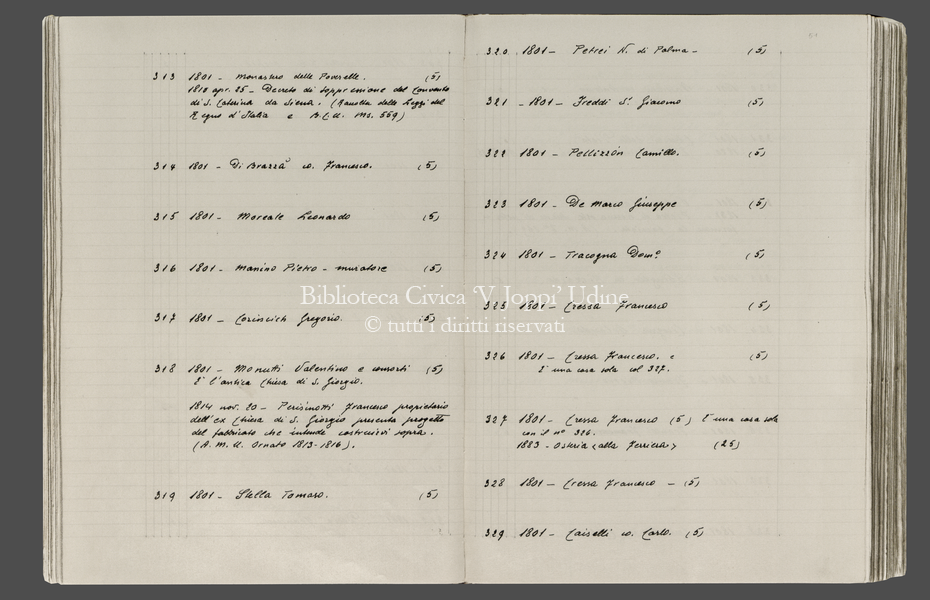 313 1801 - Monastero delle Poverelle. (5)
1810 apr. 25 - Decreto di soppressione del Convento
di S. Caterina da Siena. (Raccolta delle Leggi del
Regno d'Italia e B.C.U. Ms. 569)
314 1801 - Di Brazzà co. Francesco. (5)
315 1801 - Moreale Leonardo (5)
316 1801 - Manino Pietro - muratore (5)
317 1801 - Gregorio. (5)
318 1801 - Monutti Valentino e consorti (5)
È l'antica Chiesa di S. Giorgio.
1814 nov. 20 - Perisinotti Francesco proprietario
dell'ex Chiesa di S. Giorgio presenta progetto
del fabbricato che intende costruirvi sopra.
(A. M. U. Ornato 1813-1816).
319 1801 - Stella Tomaso. (5)
320. 1801 - Petrei N. di Palma - (5)
321 - 1801 - Freddi S. Giacomo (5)
322 1801 - Pellizzon Camillo. (5)
323 1801 - De Marco Giuseppe (5)
324 1801 - Tracogna Domº (5)
325 1801 - Cressa Francesco (5)
326 1801 - Cressa Francesco. (5)
È una casa sola col 327.
327 1801 - Cressa Francesco (5) È una casa sola
con il nº 326.
1883 - Osteria "alla Ferrieria" (25)
328 1801 - Cressa Francesco - (5)
329 1801 - Caiselli co. Carlo. (5)
Biblioteca Civica 'V Joppi' Udine
© tutti i diritti riservati